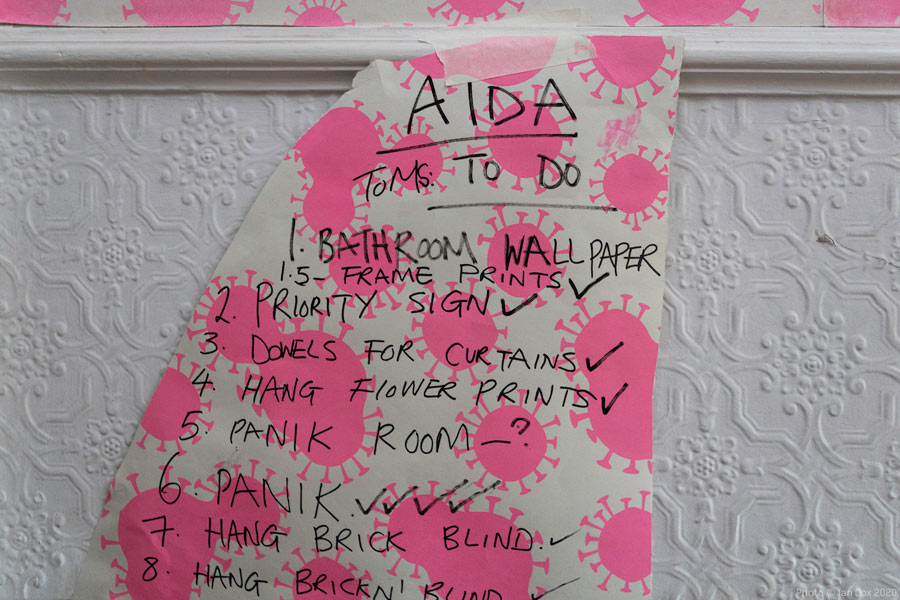 AIDA
TOMS: TO DO
1. BATHROOM WALLPAPER
1.5- FRAME PRINTS ✓
2. PRIORITY SIGN ✓
3. DOWELS FOR CURTAINS ✓
4. HANG FLOWER PRINTS ✓
5. PANIK ROOM - ?
6. PANIK. ✓✓✓✓✓
7. HANG BRICK BLIND. ✓
8. HANG BRICKN' BLIND ✓
Photo © Ian Cox 2020